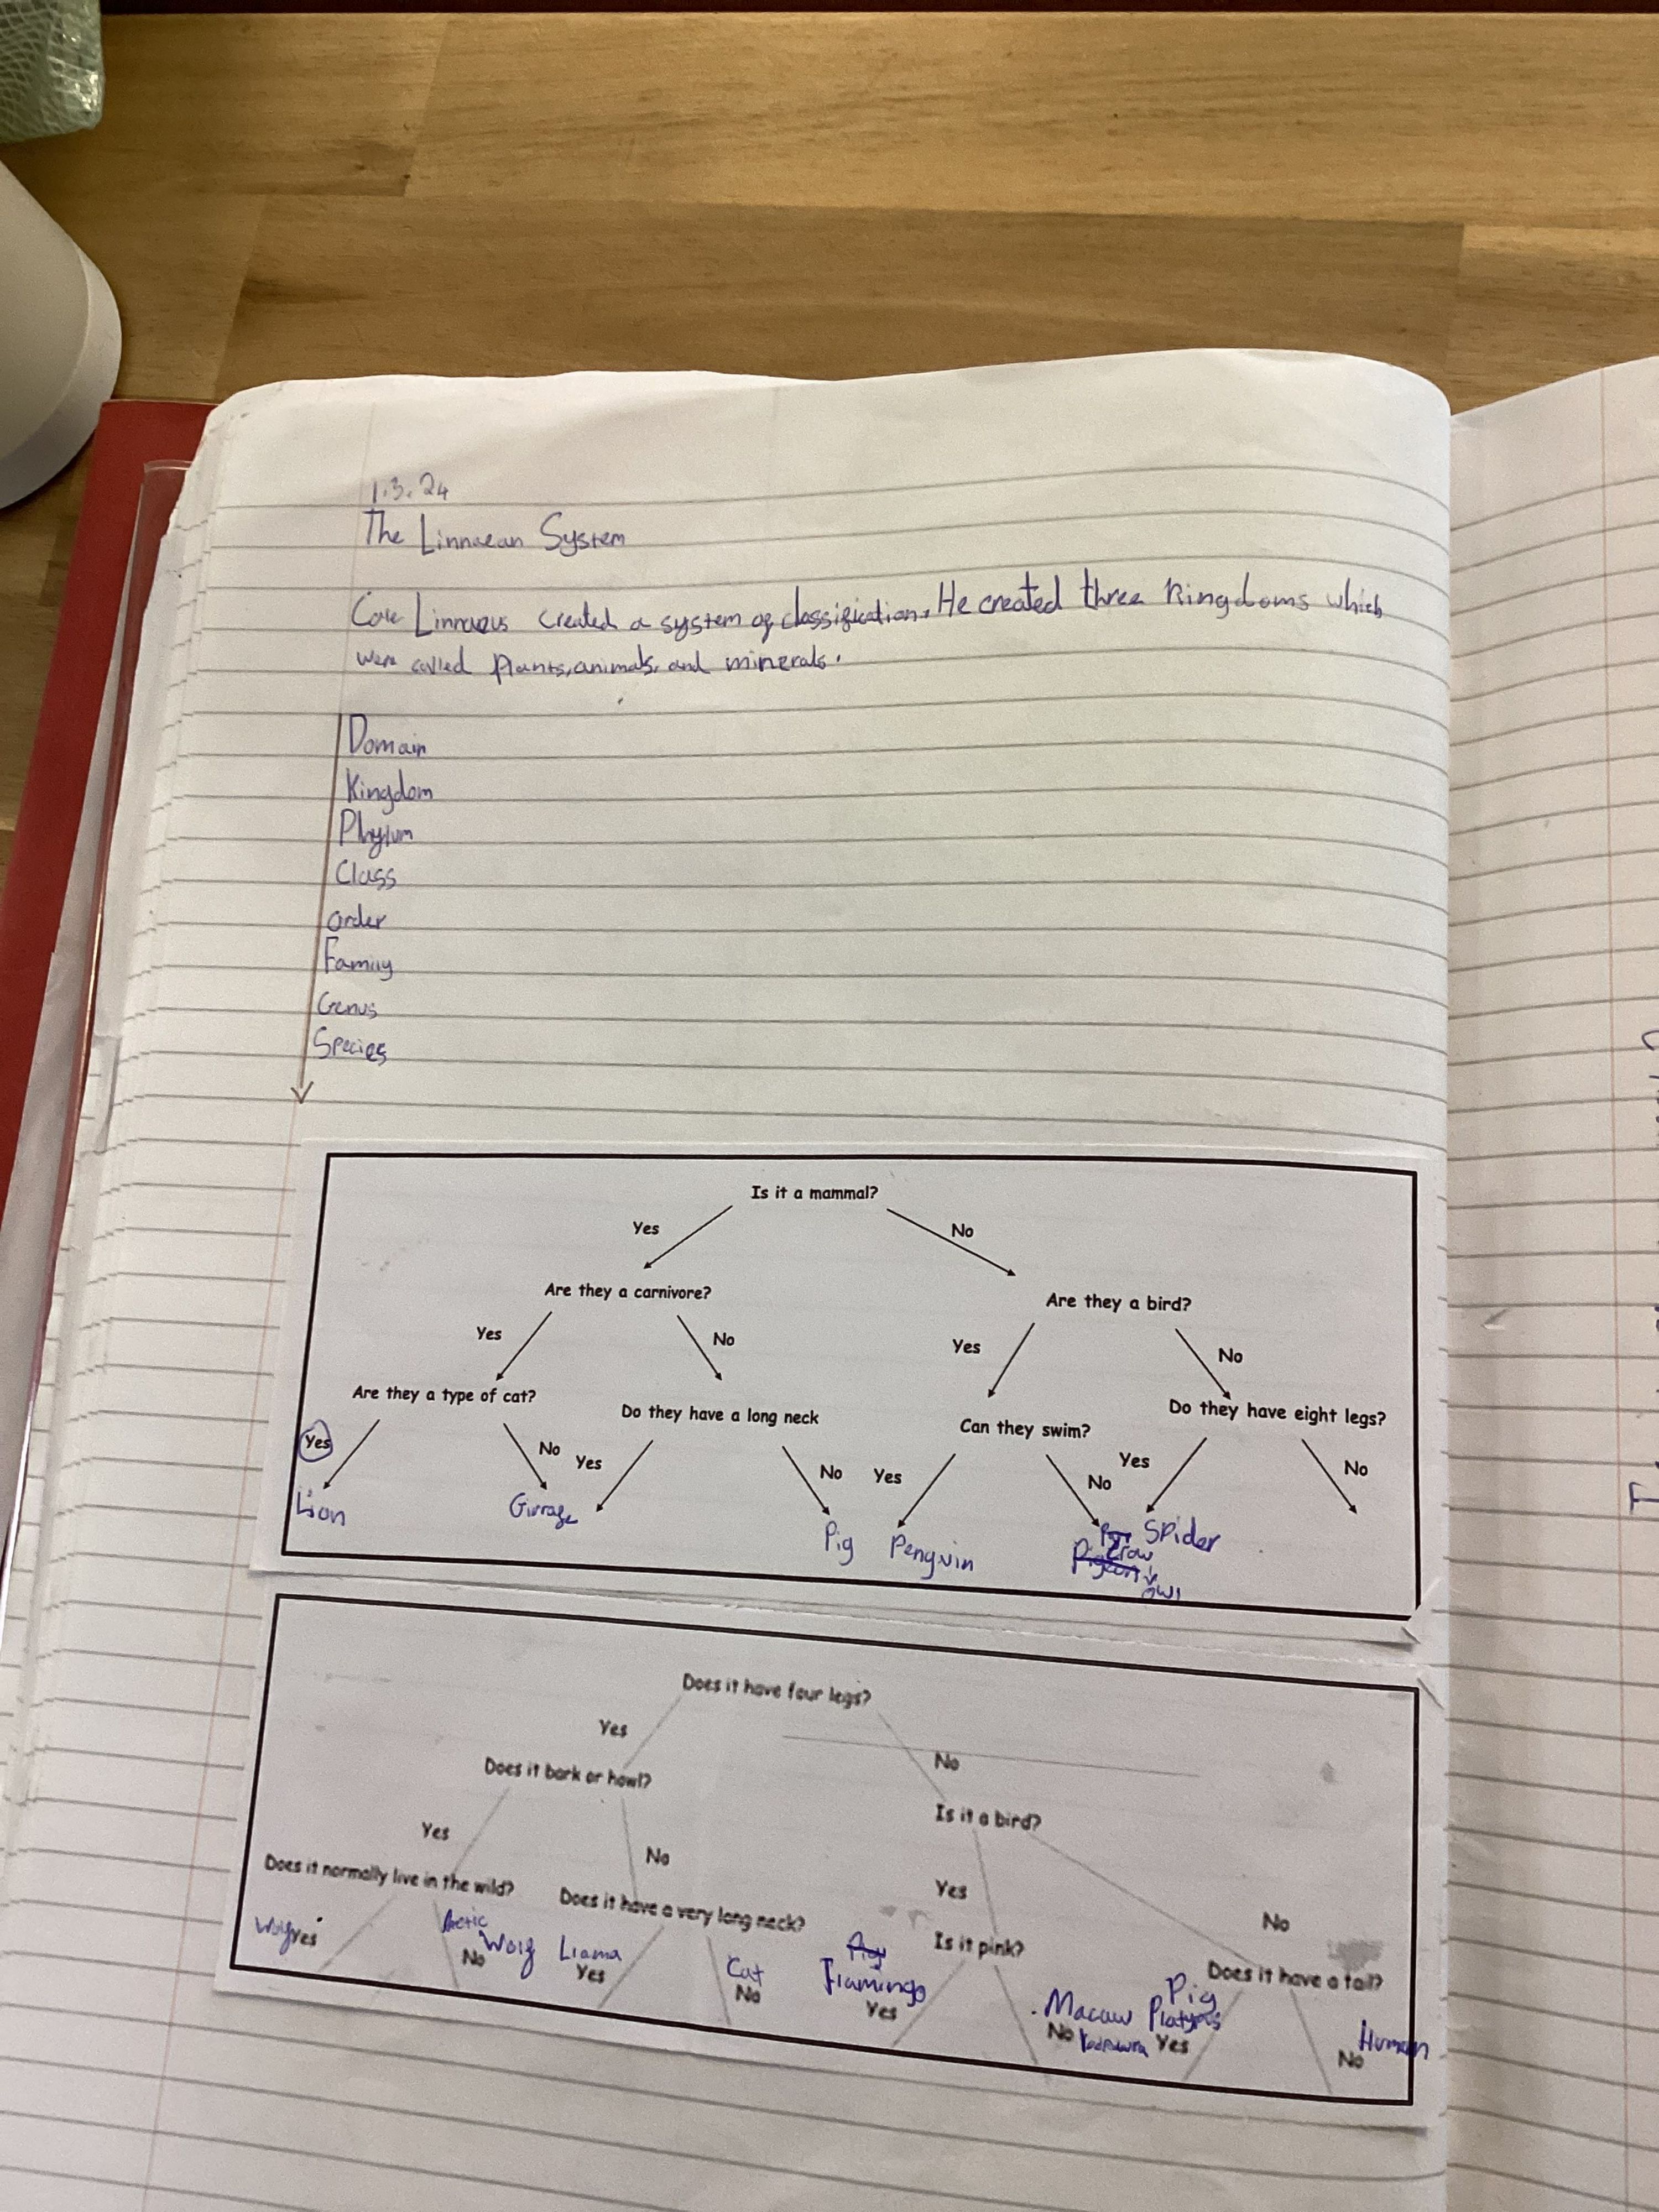 1.3.24
The Linnaean System
Linnaeus created a system of classification. He created three Kingdoms which
were called Plants, animals, and minerals.
Domain
Kingdom
Phylum
Class
order
Family
Genus
Species
Is it a mammal?
Yes No
Are they a carnivore? Are they a bird?
Yes No Yes No
Are they a type of cat? Do they have a long neck Can they swim? Do they have eight legs?
Yes No Yes No Yes No Yes No
Lion Pig Penguin Crow Spider
Pigeon
owl
Does it have four legs?
Yes No
Does it bark or howl? Is it a bird?
Yes No Yes No
Does it normally live in the wild? Does it have a very long neck? Is it pink? Does it have a tail?
Wolf Yes Arctic Wolf No Llama Yes Cat No Flamingo Yes Macaw No Pig Platypus Yes Human No